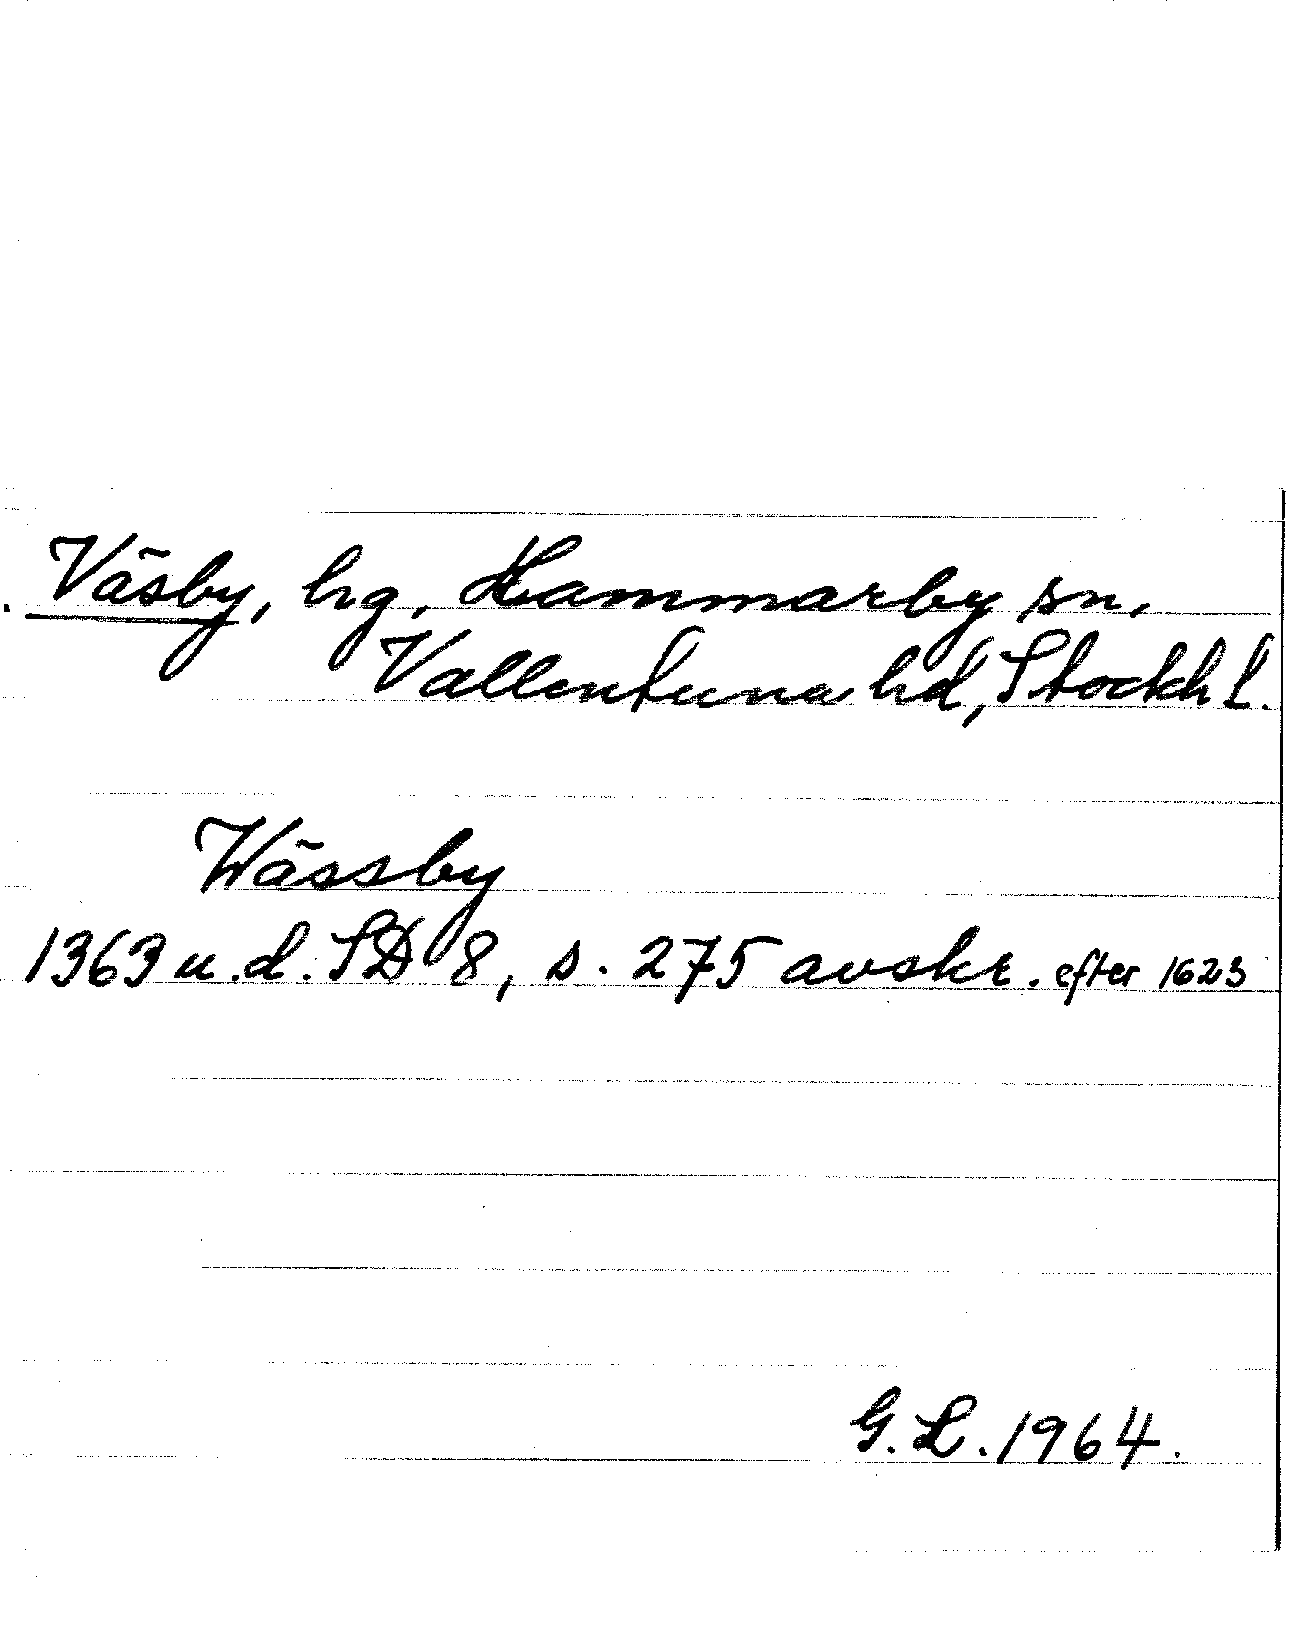 Väsby, hg, Hammarby sn,
Vallentuna hd, Stockh l.
Wässby
1363 u.d. SD 8, s. 275 avskr. efter 1623
G. L. 1964.